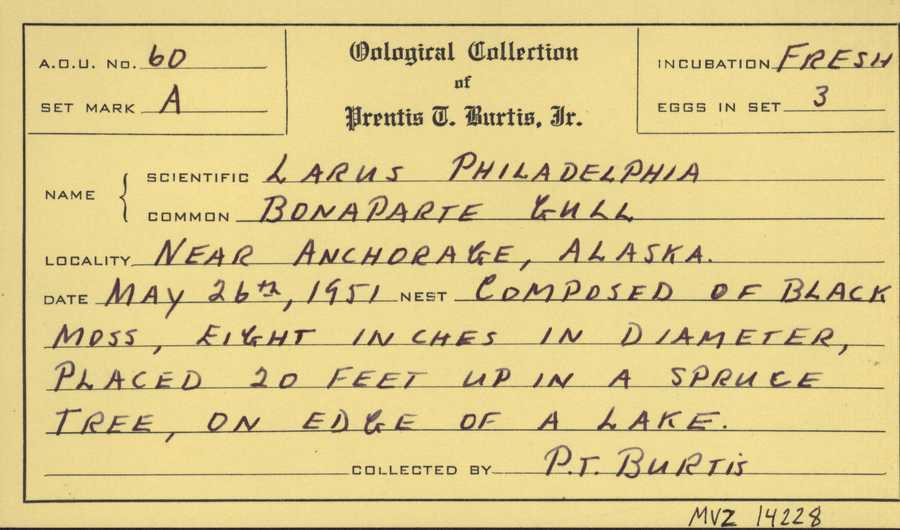 A.O.U. No. 60
SET MARK A
Oological Collection
of
Prentis T. Burtis, Jr.
INCUBATION FRESH
EGGS IN SET 3
NAME { SCIENTIFIC LARUS PHILADELPHIA
COMMON BONAPARTE GULL
LOCALITY NEAR ANCHORAGE, ALASKA.
DATE MAY 26th, 1951 NEST COMPOSED OF BLACK
MOSS, EIGHT INCHES IN DIAMETER,
PLACED 20 FEET UP IN A SPRUCE
TREE, ON EDGE OF A LAKE.
COLLECTED BY P.T. BURTis
MVZ 14228